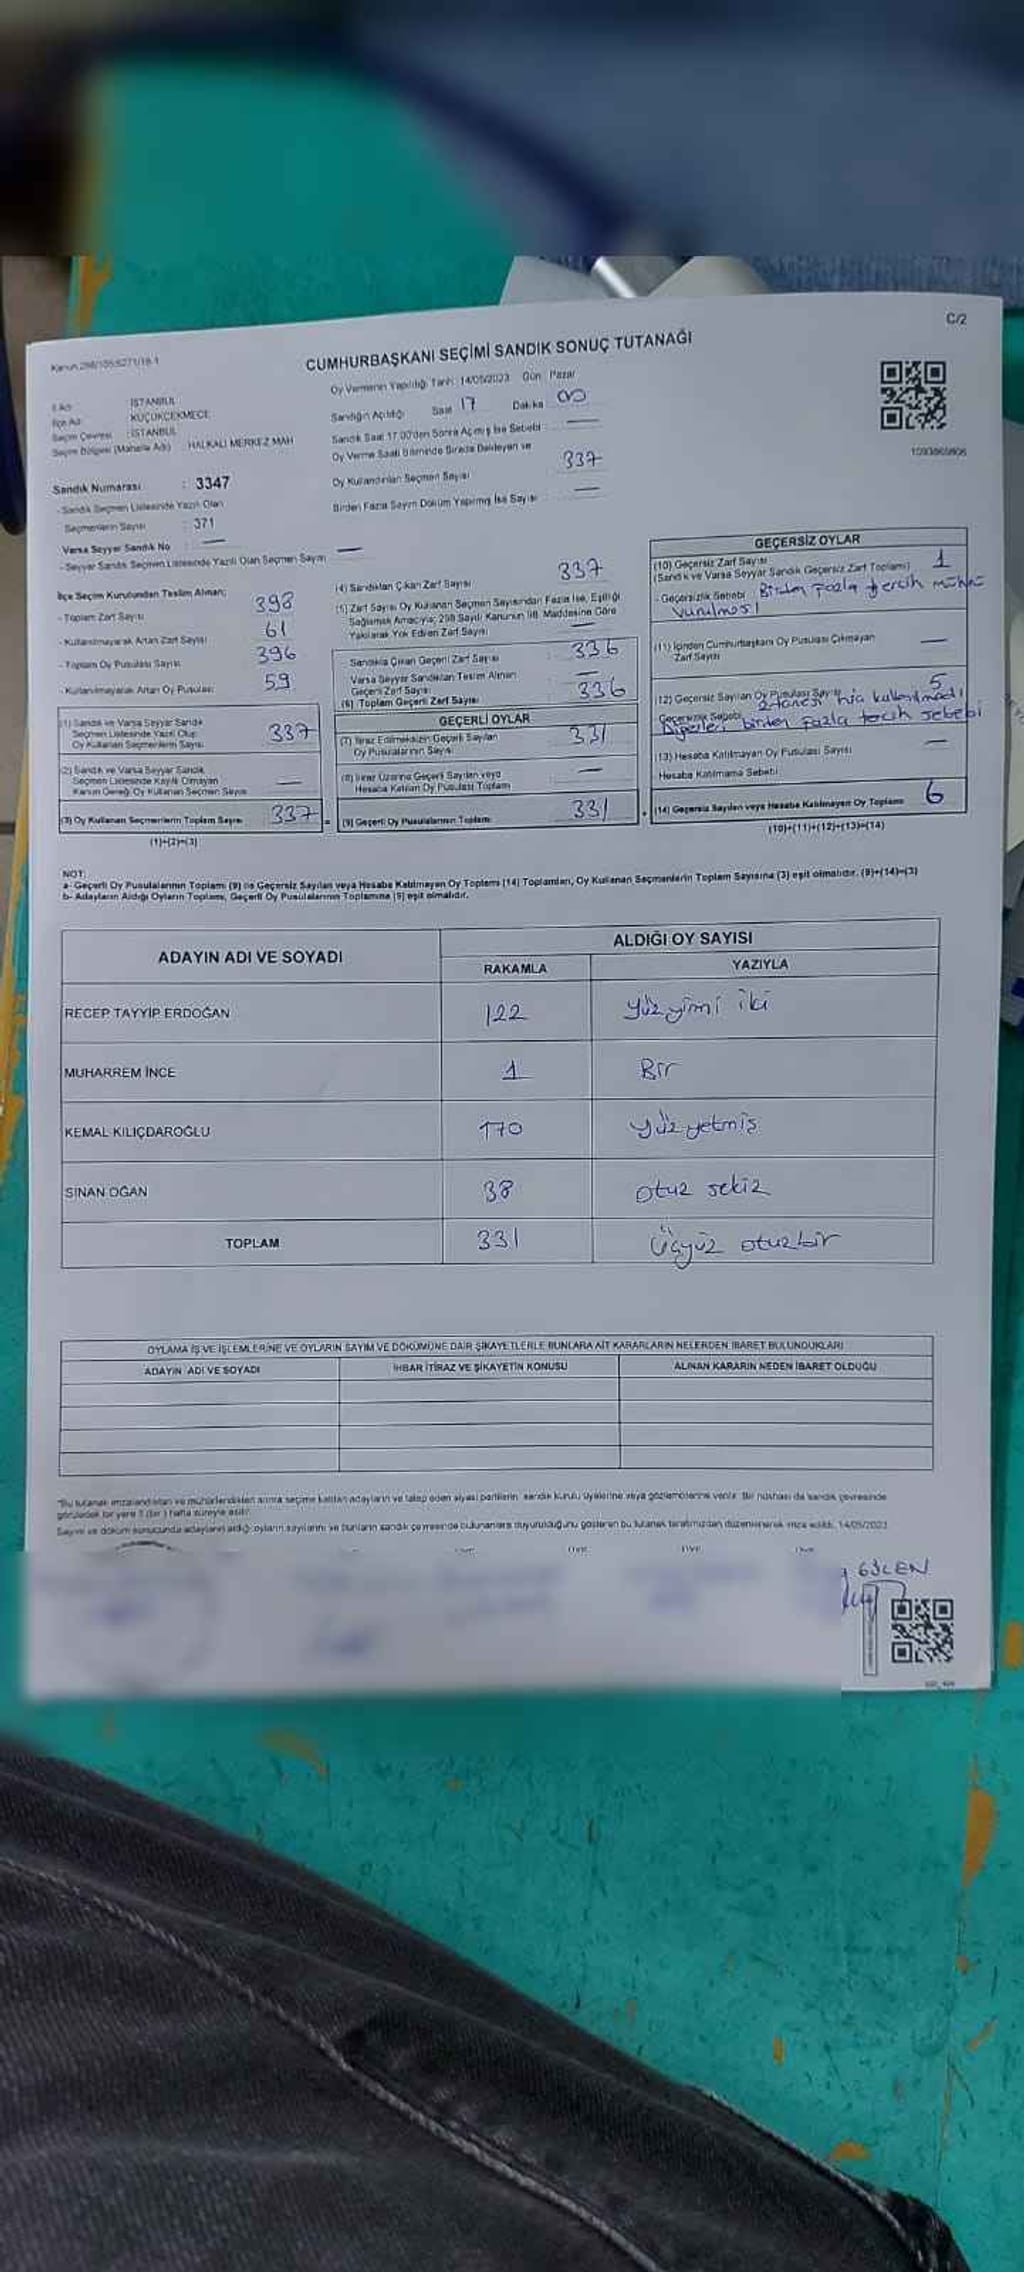 C/2
Kanun:298/135:6271/18-1
CUMHURBAŞKANI SEÇİMİ SANDIK SONUÇ TUTANAĞI
Oy Vermenin Yapıldığı Tarih: 14/05/2023 Gün: Pazar
İl Adı : İSTANBUL
İlçe Adı : KÜÇÜKÇEKMECE
Seçim Çevresi : İSTANBUL
Seçim Bölgesi (Mahalle Adı) : HALKALI MERKEZ MAH
Sandık Numarası : 3347
- Sandık Seçmen Listesinde Yazılı Olan
Seçmenlerin Sayısı : 371
Varsa Seyyar Sandık No : —
- Seyyar Sandık Seçmen Listesinde Yazılı Olan Seçmen Sayısı —
Sandığın Açıldığı Saat 17 Dakika 00
Sandık Saat 17.00'den Sonra Açılmış İse Sebebi : —
Oy Verme Saati Bitiminde Sırada Bekleyen ve
Oy Kullandırılan Seçmen Sayısı 337
Birden Fazla Sayım Döküm Yapılmış İse Sayısı —
1093865806
İlçe Seçim Kurulundan Teslim Alınan;
- Toplam Zarf Sayısı 398
- Kullanılmayarak Artan Zarf Sayısı 61
- Toplam Oy Pusulası Sayısı 396
- Kullanılmayarak Artan Oy Pusulası 59
(1) Sandık ve Varsa Seyyar Sandık
Seçmen Listesinde Yazılı Olup
Oy Kullanan Seçmenlerin Sayısı 337
(2) Sandık ve Varsa Seyyar Sandık
Seçmen Listesinde Kayıtlı Olmayan
Kanun Gereği Oy Kullanan Seçmen Sayısı —
(3) Oy Kullanan Seçmenlerin Toplam Sayısı 337
(1)+(2)=(3)
(4) Sandıktan Çıkan Zarf Sayısı 337
(5) Zarf Sayısı Oy Kullanan Seçmen Sayısından Fazla İse, Eşitliği
Sağlamak Amacıyla; 298 Sayılı Kanunun 98. Maddesine Göre
Yakılarak Yok Edilen Zarf Sayısı —
Sandıkta Çıkan Geçerli Zarf Sayısı 336
Varsa Seyyar Sandıktan Teslim Alınan
Geçerli Zarf Sayısı —
(6) Toplam Geçerli Zarf Sayısı 336
GEÇERLİ OYLAR
(7) İtiraz Edilmeksizin Geçerli Sayılan
Oy Pusulalarının Sayısı 331
(8) İtiraz Üzerine Geçerli Sayılan veya
Hesaba Katılan Oy Pusulası Toplamı —
(9) Geçerli Oy Pusulalarının Toplamı 331
GEÇERSİZ OYLAR
(10) Geçersiz Zarf Sayısı 1
(Sandık ve Varsa Seyyar Sandık Geçersiz Zarf Toplamı)
- Geçersizlik Sebebi : Birden fazla tercih mührü
vurulması
(11) İçinden Cumhurbaşkanı Oy Pusulası Çıkmayan
Zarf Sayısı —
(12) Geçersiz Sayılan Oy Pusulası Sayısı 5
Geçersizlik Sebebi 2 tanesi hiç kullanılmadı
Diğerleri birden fazla tercih sebebi
(13) Hesaba Katılmayan Oy Pusulası Sayısı —
Hesaba Katılmama Sebebi
(14) Geçersiz Sayılan veya Hesaba Katılmayan Oy Toplamı 6
(10)+(11)+(12)+(13)=(14)
NOT:
a- Geçerli Oy Pusulalarının Toplamı (9) ile Geçersiz Sayılan veya Hesaba Katılmayan Oy Toplamı (14) Toplamları, Oy Kullanan Seçmenlerin Toplam Sayısına (3) eşit olmalıdır. (9)+(14)=(3)
b- Adayların Aldığı Oyların Toplamı, Geçerli Oy Pusulalarının Toplamına (9) eşit olmalıdır.
ADAYIN ADI VE SOYADI
ALDIĞI OY SAYISI
RAKAMLA YAZIYLA
RECEP TAYYİP ERDOĞAN 122 Yüz yimi iki
MUHARREM İNCE 1 Bir
KEMAL KILIÇDAROĞLU 170 Yüz yetmiş
SİNAN OĞAN 38 otuz sekiz
TOPLAM 331 Üçyüz otuzbir
OYLAMA İŞ VE İŞLEMLERİNE VE OYLARIN SAYIM VE DÖKÜMÜNE DAİR ŞİKAYETLERLE BUNLARA AİT KARARLARIN NELERDEN İBARET BULUNDUKLARI
ADAYIN ADI VE SOYADI
İHBAR İTİRAZ VE ŞİKAYETİN KONUSU
ALINAN KARARIN NEDEN İBARET OLDUĞU
"Bu tutanak imzalandıktan ve mühürlendikten sonra seçime katılan adayların ve talep eden siyasi partilerin sandık kurulu üyelerine veya gözlemcilerine verilir. Bir nüshası da sandık çevresinde
görülebilir bir yere 1 (bir) hafta süreyle asılır.
Sayım ve döküm sonucunda adayların aldığı oyların sayılarını ve bunların sandık çevresinde bulunanlara duyurulduğunu gösteren bu tutanak tarafımızdan düzenlenerek imza edildi. 14/05/2023
GÜLEN